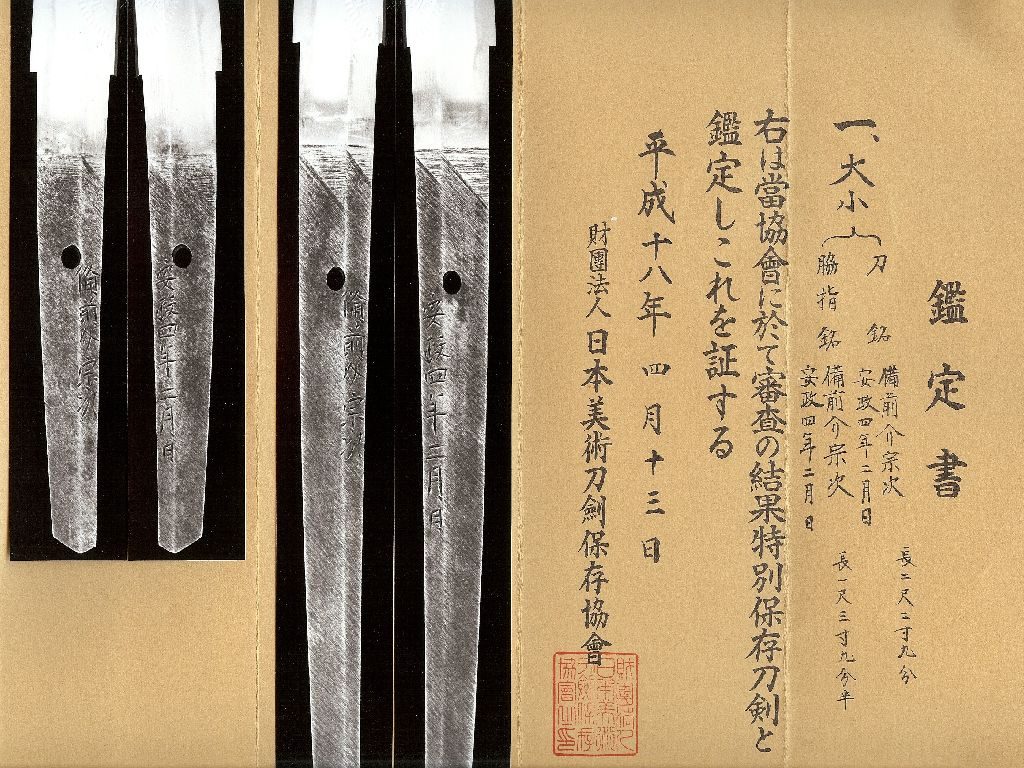 鑑定書
一、大小
刀 銘 備前介宗次
安政四年二月日
長二尺二寸九分
脇指 銘 備前介宗次
安政四年二月日
長一尺三寸九分半
右は當協會に於て審査の結果特別保存刀剣と
鑑定しこれを証する
平成十八年四月十三日
財團法人日本美術刀劍保存協會
安政四年二月日
備前介宗次
安政四年二月日
備前介宗次